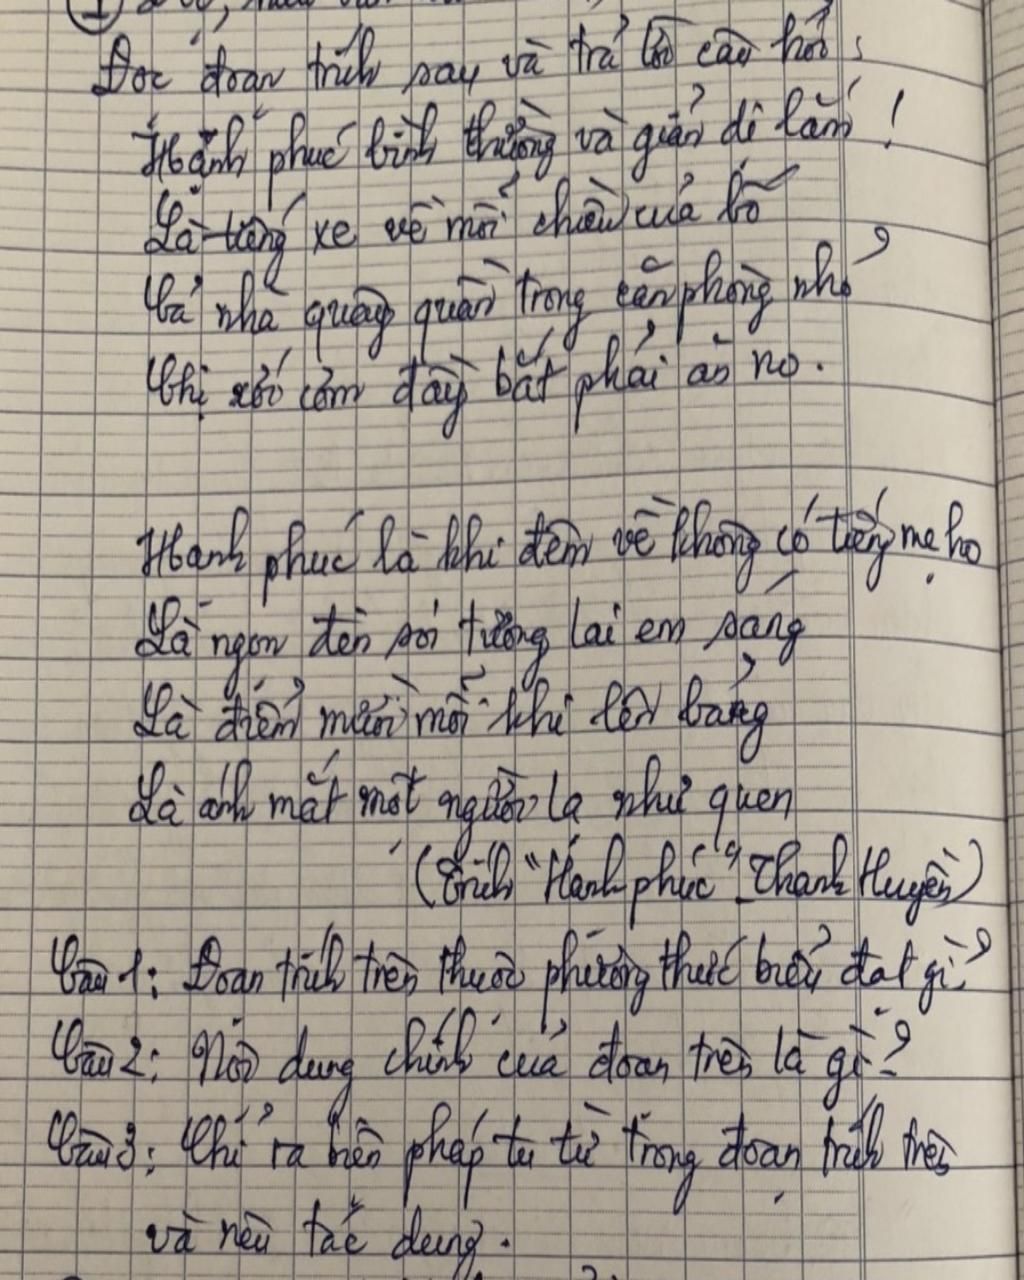 Đọc đoạn trích sau và trả lời câu hỏi:
Hạnh phúc bình thường và giản dị lắm!
Là tiếng xe về mỗi chiều của bố
Cả nhà quây quần trong căn phòng nhỏ
Chị xới cơm đầy bắt phải ăn no.
Hạnh phúc là khi đêm về không có tiếng mẹ ho
Là ngọn đèn soi tương lai em sáng
Là điểm mười mỗi khi lên bảng
Là ánh mắt một người lạ như quen
(Trích "Hạnh phúc" - Thanh Huyền)
Câu 1: Đoạn trích trên thuộc phương thức biểu đạt gì?
Câu 2: Nội dung chính của đoạn trên là gì?
Câu 3: Chỉ ra biện pháp tu từ trong đoạn trích trên
và nêu tác dụng.